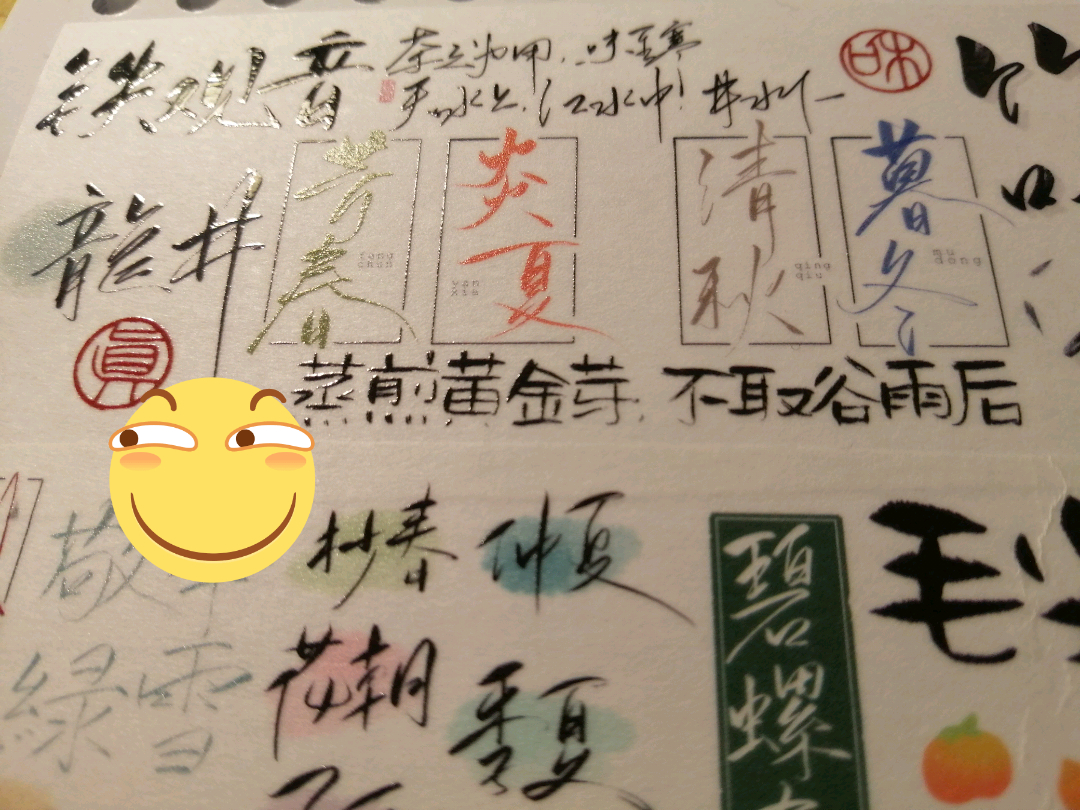 铁观音
茶之为用，味至寒
味
山水上，江水中，井水下
龍井
芳春
fang
chun
炎夏
yan
xia
清秋
qing
qiu
暮冬
mu
dong
真
蒸煎黄金芽，不取谷雨后
敬
綠雪
抄春
仲夏
碧螺
毛
花朝
季夏